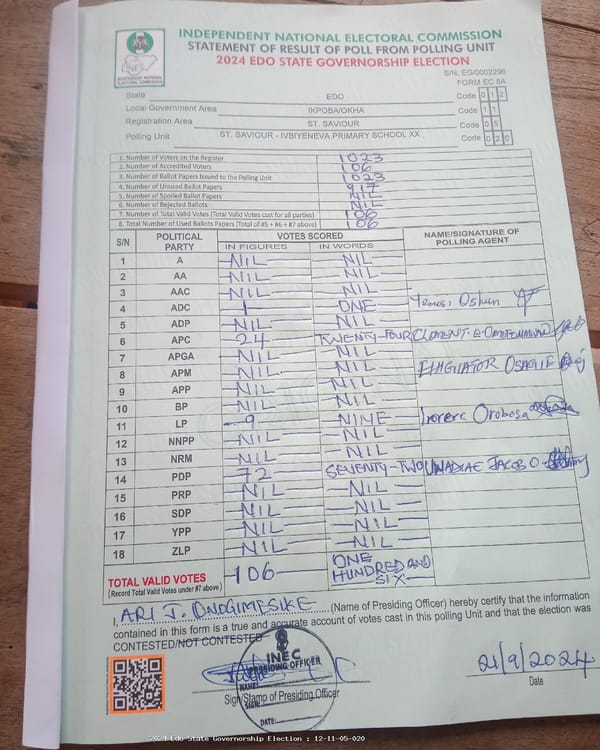 INDEPENDENT NATIONAL ELECTORAL COMMISSION
STATEMENT OF RESULT OF POLL FROM POLLING UNIT
2024 EDO STATE GOVERNORSHIP ELECTION
S/N: EG/0002296
FORM EC 8A
State EDO Code 0 1 2
Local Government Area IKPOBA/OKHA Code 1 1
Registration Area ST. SAVIOUR Code 0 5
Polling Unit ST. SAVIOUR - IVBIYENEVA PRIMARY SCHOOL XX Code 0 2 0
1. Number of Voters on the Register 1023
2. Number of Accredited Voters 106
3. Number of Ballot Papers Issued to the Polling Unit 1023
4. Number of Unused Ballot Papers 917
5. Number of Spoiled Ballot Papers NIL
6. Number of Rejected Ballots NIL
7. Number of Total Valid Votes (Total Valid Votes cast for all parties) 106
8. Total Number of Used Ballots Papers (Total of #5 + #6 + #7 above) 106
S/N POLITICAL PARTY VOTES SCORED NAME/SIGNATURE OF POLLING AGENT
IN FIGURES IN WORDS
1 A NIL NIL
2 AA NIL NIL
3 AAC NIL NIL
4 ADC 1 ONE Yemisi Oshun
5 ADP NIL NIL
6 APC 24 TWENTY-FOUR CLEMENT
7 APGA NIL NIL
8 APM NIL NIL OSAGIE
9 APP NIL NIL
10 BP NIL NIL
11 LP 9 NINE Orobosa
12 NNPP NIL NIL
13 NRM NIL NIL
14 PDP 72 SEVENTY-TWO JACOB O
15 PRP NIL NIL
16 SDP NIL NIL
17 YPP NIL NIL
18 ZLP NIL NIL
TOTAL VALID VOTES 106 ONE HUNDRED AND SIX
(Record Total Valid Votes under #7 above)
I, ARI J. ONOGIMESIKE (Name of Presiding Officer) hereby certify that the information
contained in this form is a true and accurate account of votes cast in this polling Unit and that the election was
CONTESTED/NOT CONTESTED
INEC
PRESIDING OFFICER
NAME:
SIGN:
DATE:
Sign/Stamp of Presiding Officer
21/9/2024
Date
2024 Edo State Governorship Election : 12-11-05-020